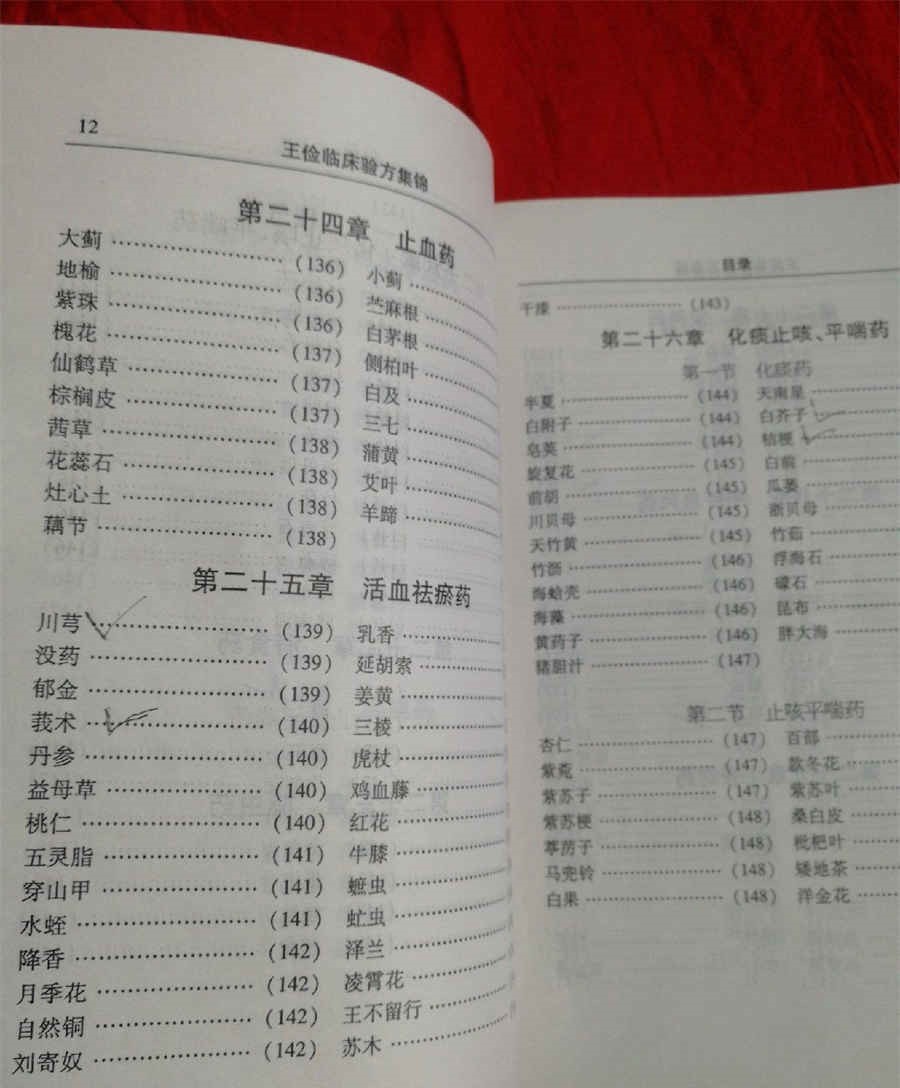 12
王俭临床验方集锦
第二十四章 止血药
大蓟 ……………… (136) 小蓟 ………
地榆 ……………… (136) 苎麻根 ………
紫珠 ……………… (136) 白茅根 ………
槐花 ……………… (137) 侧柏叶 ………
仙鹤草 ……………… (137) 白及 ………
棕榈皮 ……………… (137) 三七 ………
茜草 ……………… (138) 蒲黄 ………
花蕊石 ……………… (138) 艾叶 ………
灶心土 ……………… (138) 羊蹄 ………
藕节 ……………… (138)
第二十五章 活血祛瘀药
川芎 ……………… (139) 乳香 ………
没药 ……………… (139) 延胡索 ………
郁金 ……………… (139) 姜黄 ………
莪术 ……………… (140) 三棱 ………
丹参 ……………… (140) 虎杖 ………
益母草 ……………… (140) 鸡血藤 ………
桃仁 ……………… (140) 红花 ………
五灵脂 ……………… (141) 牛膝 ………
穿山甲 ……………… (141) 蟅虫 ………
水蛭 ……………… (141) 虻虫 ………
降香 ……………… (142) 泽兰 ………
月季花 ……………… (142) 凌霄花 ………
自然铜 ……………… (142) 王不留行 ………
刘寄奴 ……………… (142) 苏木 ………
目录
干漆 ……………… (143)
第二十六章 化痰止咳、平喘药
第一节 化痰药
半夏 ……………… (144) 天南星 ………
白附子 ……………… (144) 白芥子 ………
皂荚 ……………… (144) 桔梗 ………
旋复花 ……………… (145) 白前 ………
前胡 ……………… (145) 瓜蒌 ………
川贝母 ……………… (145) 浙贝母 ………
天竹黄 ……………… (145) 竹茹 ………
竹沥 ……………… (146) 浮海石 ………
海蛤壳 ……………… (146) 礞石 ………
海藻 ……………… (146) 昆布 ………
黄药子 ……………… (146) 胖大海 ………
猪胆汁 ……………… (147)
第二节 止咳平喘药
杏仁 ……………… (147) 百部 ………
紫菀 ……………… (147) 款冬花 ………
紫苏子 ……………… (147) 紫苏叶 ………
紫苏梗 ……………… (148) 桑白皮 ………
葶苈子 ……………… (148) 枇杷叶 ………
马兜铃 ……………… (148) 矮地茶 ………
白果 ……………… (148) 洋金花 ………